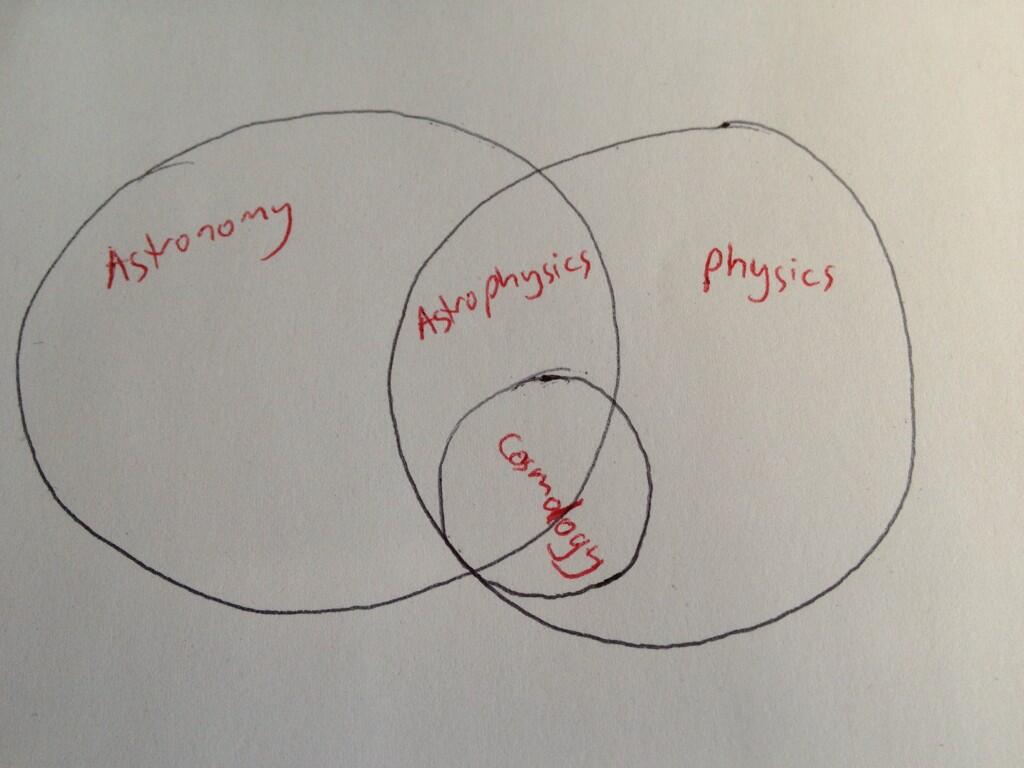 Astronomy
Astrophysics
Physics
Cosmology